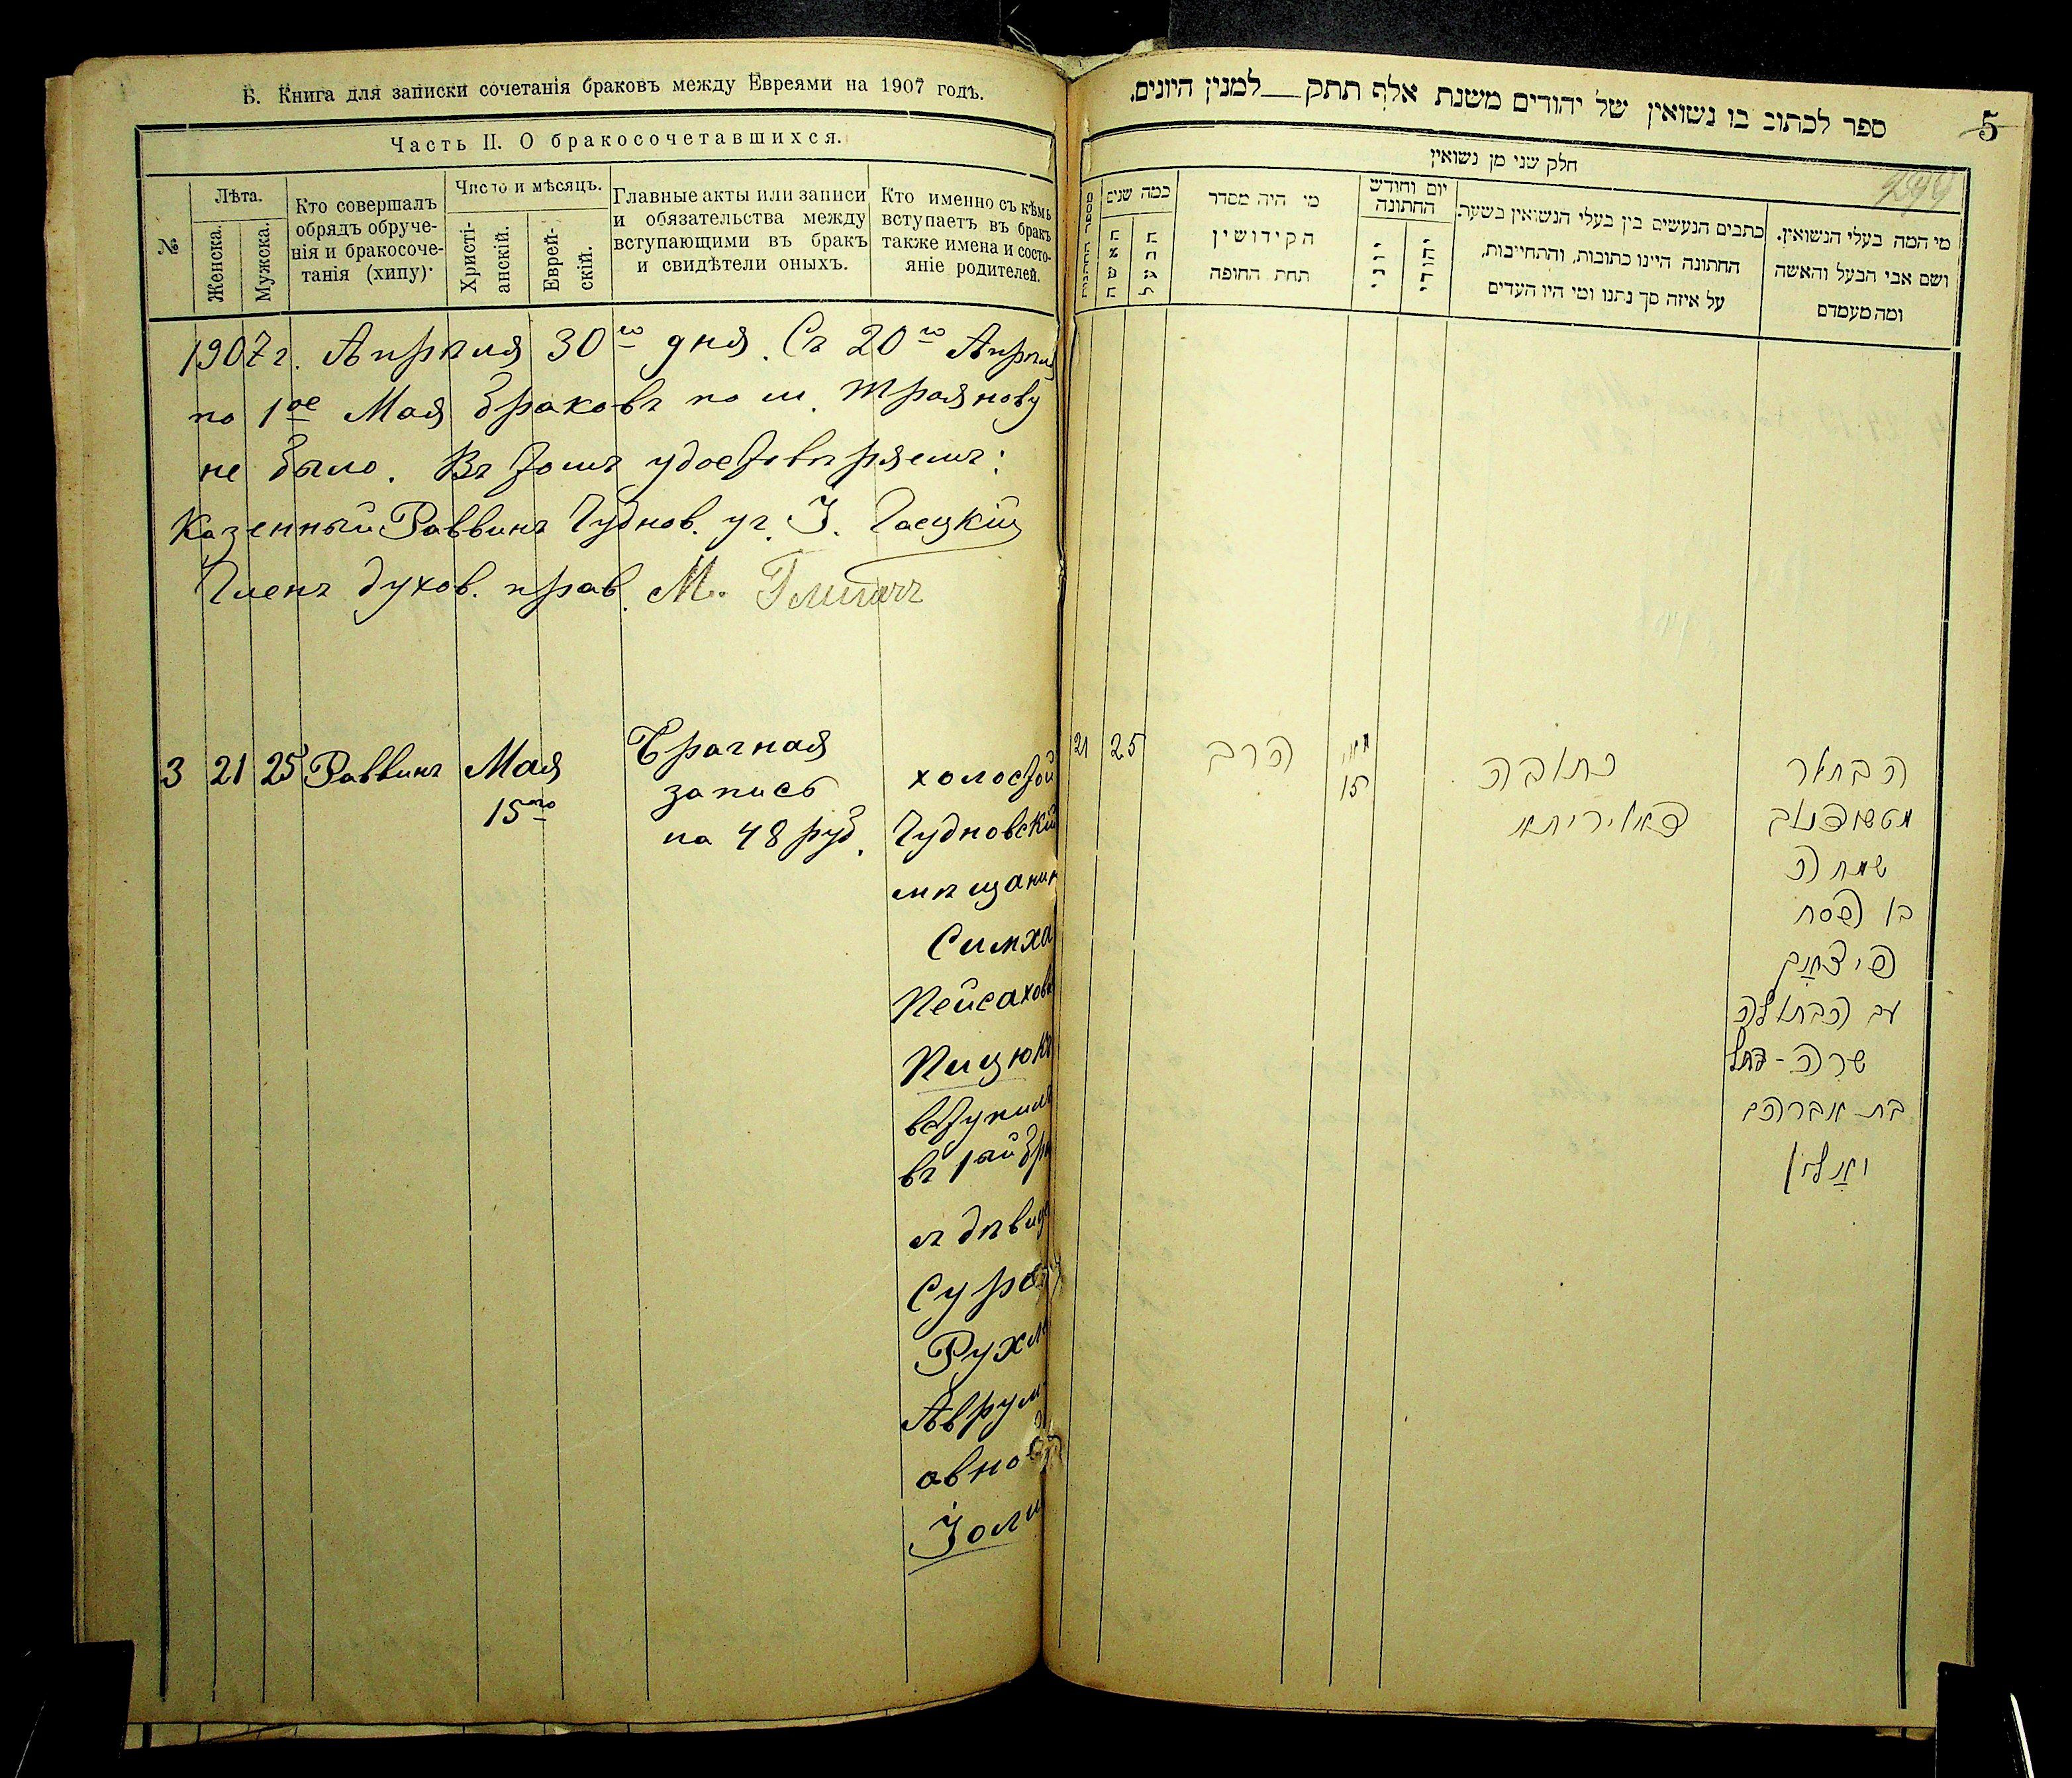 Б. Книга для записки сочетанія браковъ между Евреями на 1907 годъ.
Часть II. О бракосочетавшихся.
№
Лѣта.
Женска.
Мужска.
Кто совершалъ
обрядъ обруче-
нія и бракосоче-
танія (хипу)
Число и мѣсяцъ.
Христі-
анскій.
Еврей-
скій.
Главные акты или записи
и обязательства между
вступающими въ бракъ
и свидѣтели оныхъ.
Кто именно съ кѣмъ
вступаетъ въ бракъ
также имена и состо-
яніе родителей.
1907 г. Апрѣля 30го дня. Съ 20го Апрѣля
по 1ое Мая браковъ по м. Троянову
не было. Въ томъ удостовѣряемъ:
Казенный Раввинъ Чуднов. уч. І.
Членъ духов. прав. М.
3 21 25 Раввинъ
Мая
15го
Брачная
запись
на 48 руб.
холостой
Чудновскій
мѣщанин
Симха
Пейсахов
Пицюкъ
вступилъ
въ 1ый бра
съ дѣвиц
Суро
Рухл
Аврум
овно
Золи
5
ספר לכתוב בו נשואין של יהודים משנת אלף תתק למנין היונים.
חלק שני מן נשואין
מספר החתונות
כמה שנים
האשה
הבעל
מי היה מסדר
הקידושין
תחת החופה
יום וחודש
החתונה
יוני
יהודי
כתבים הנעשים בין בעלי הנשואין בשעת
החתונה היינו כתובות, והתחייבות,
על איזה סך נתנו ומי היו העדים
מי המה בעלי הנשואין.
ושם אבי הבעל והאשה
ומה מעמדם
21 25
הרב
מאי
15
כתובה
דאוריתא
הבחור
מטשודנוב
שמחה
בן פסח
פיצאק
עב הבתולה
שרה-רחל
בת אברהם